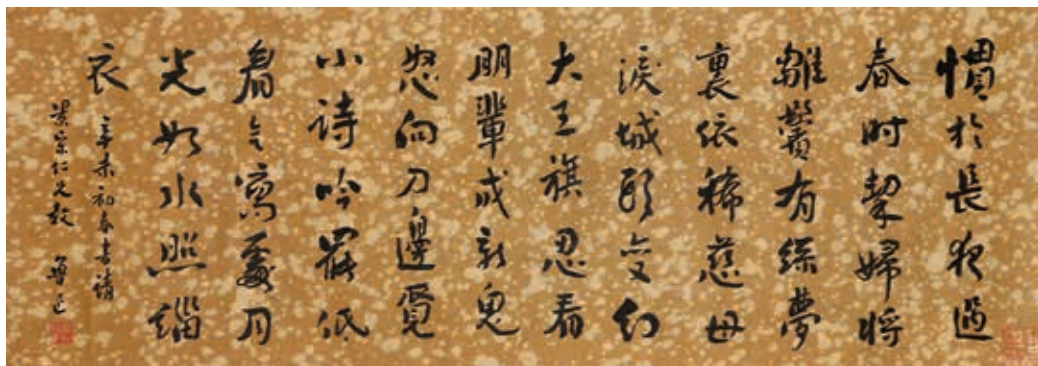 慣於長夜過
春时挈婦將
雛鬢有絲夢
裏依稀慈母
淚城頭變幻
大王旗忍看
朋輩成新鬼
怒向刀邊覓
小詩吟罷低
眉無寫處月
光如水照緇
衣
辛未初春書請
宗仁兄教 魯迅